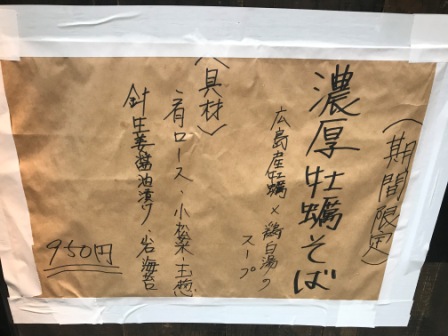 (期間限定)
濃厚牡蠣そば
広島産牡蠣×鶏白湯の
スープ
(具材)
肩ロース、小松菜、玉葱
針生姜醤油漬け、岩海苔
950円